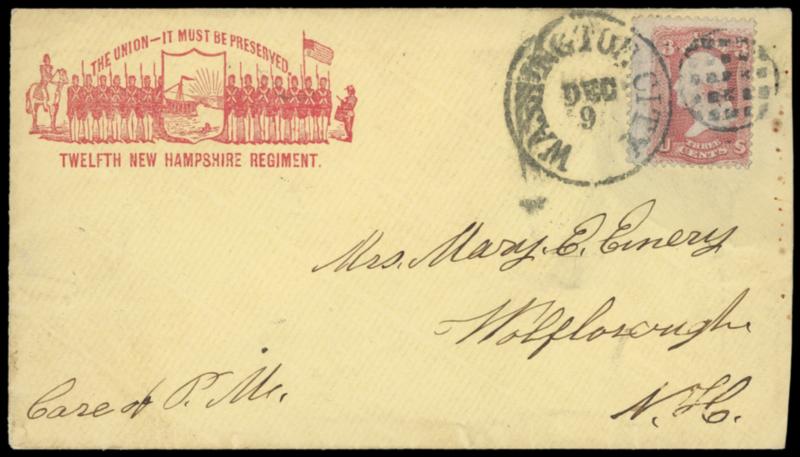 THE UNION—IT MUST BE PRESERVED
TWELFTH NEW HAMPSHIRE REGIMENT.
WASHINGTON CITY
DEC
9
3
THREE
CENTS
U S
Mrs. Mary E. Emery
Wolfborough
N. H.
Care of P. M.